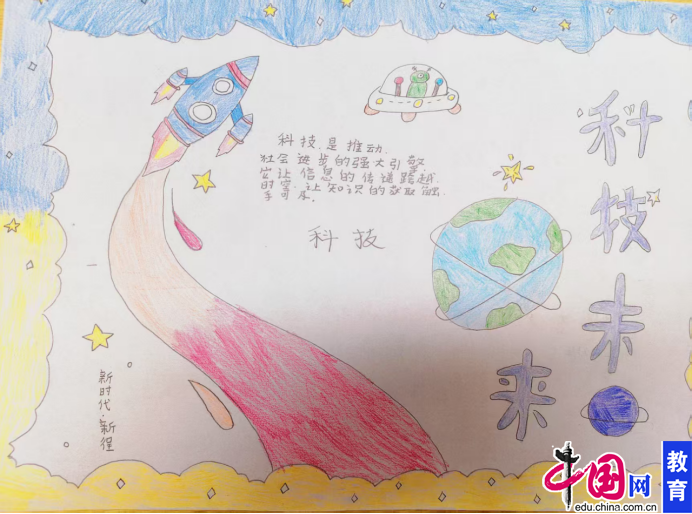 科技是推动
社会进步的强大引擎
它让信息的传递跨越
时空,让知识的获取触
手可及.
科技
科技未
来
新时代·新徎
中国网
edu.china.com.cn
教育